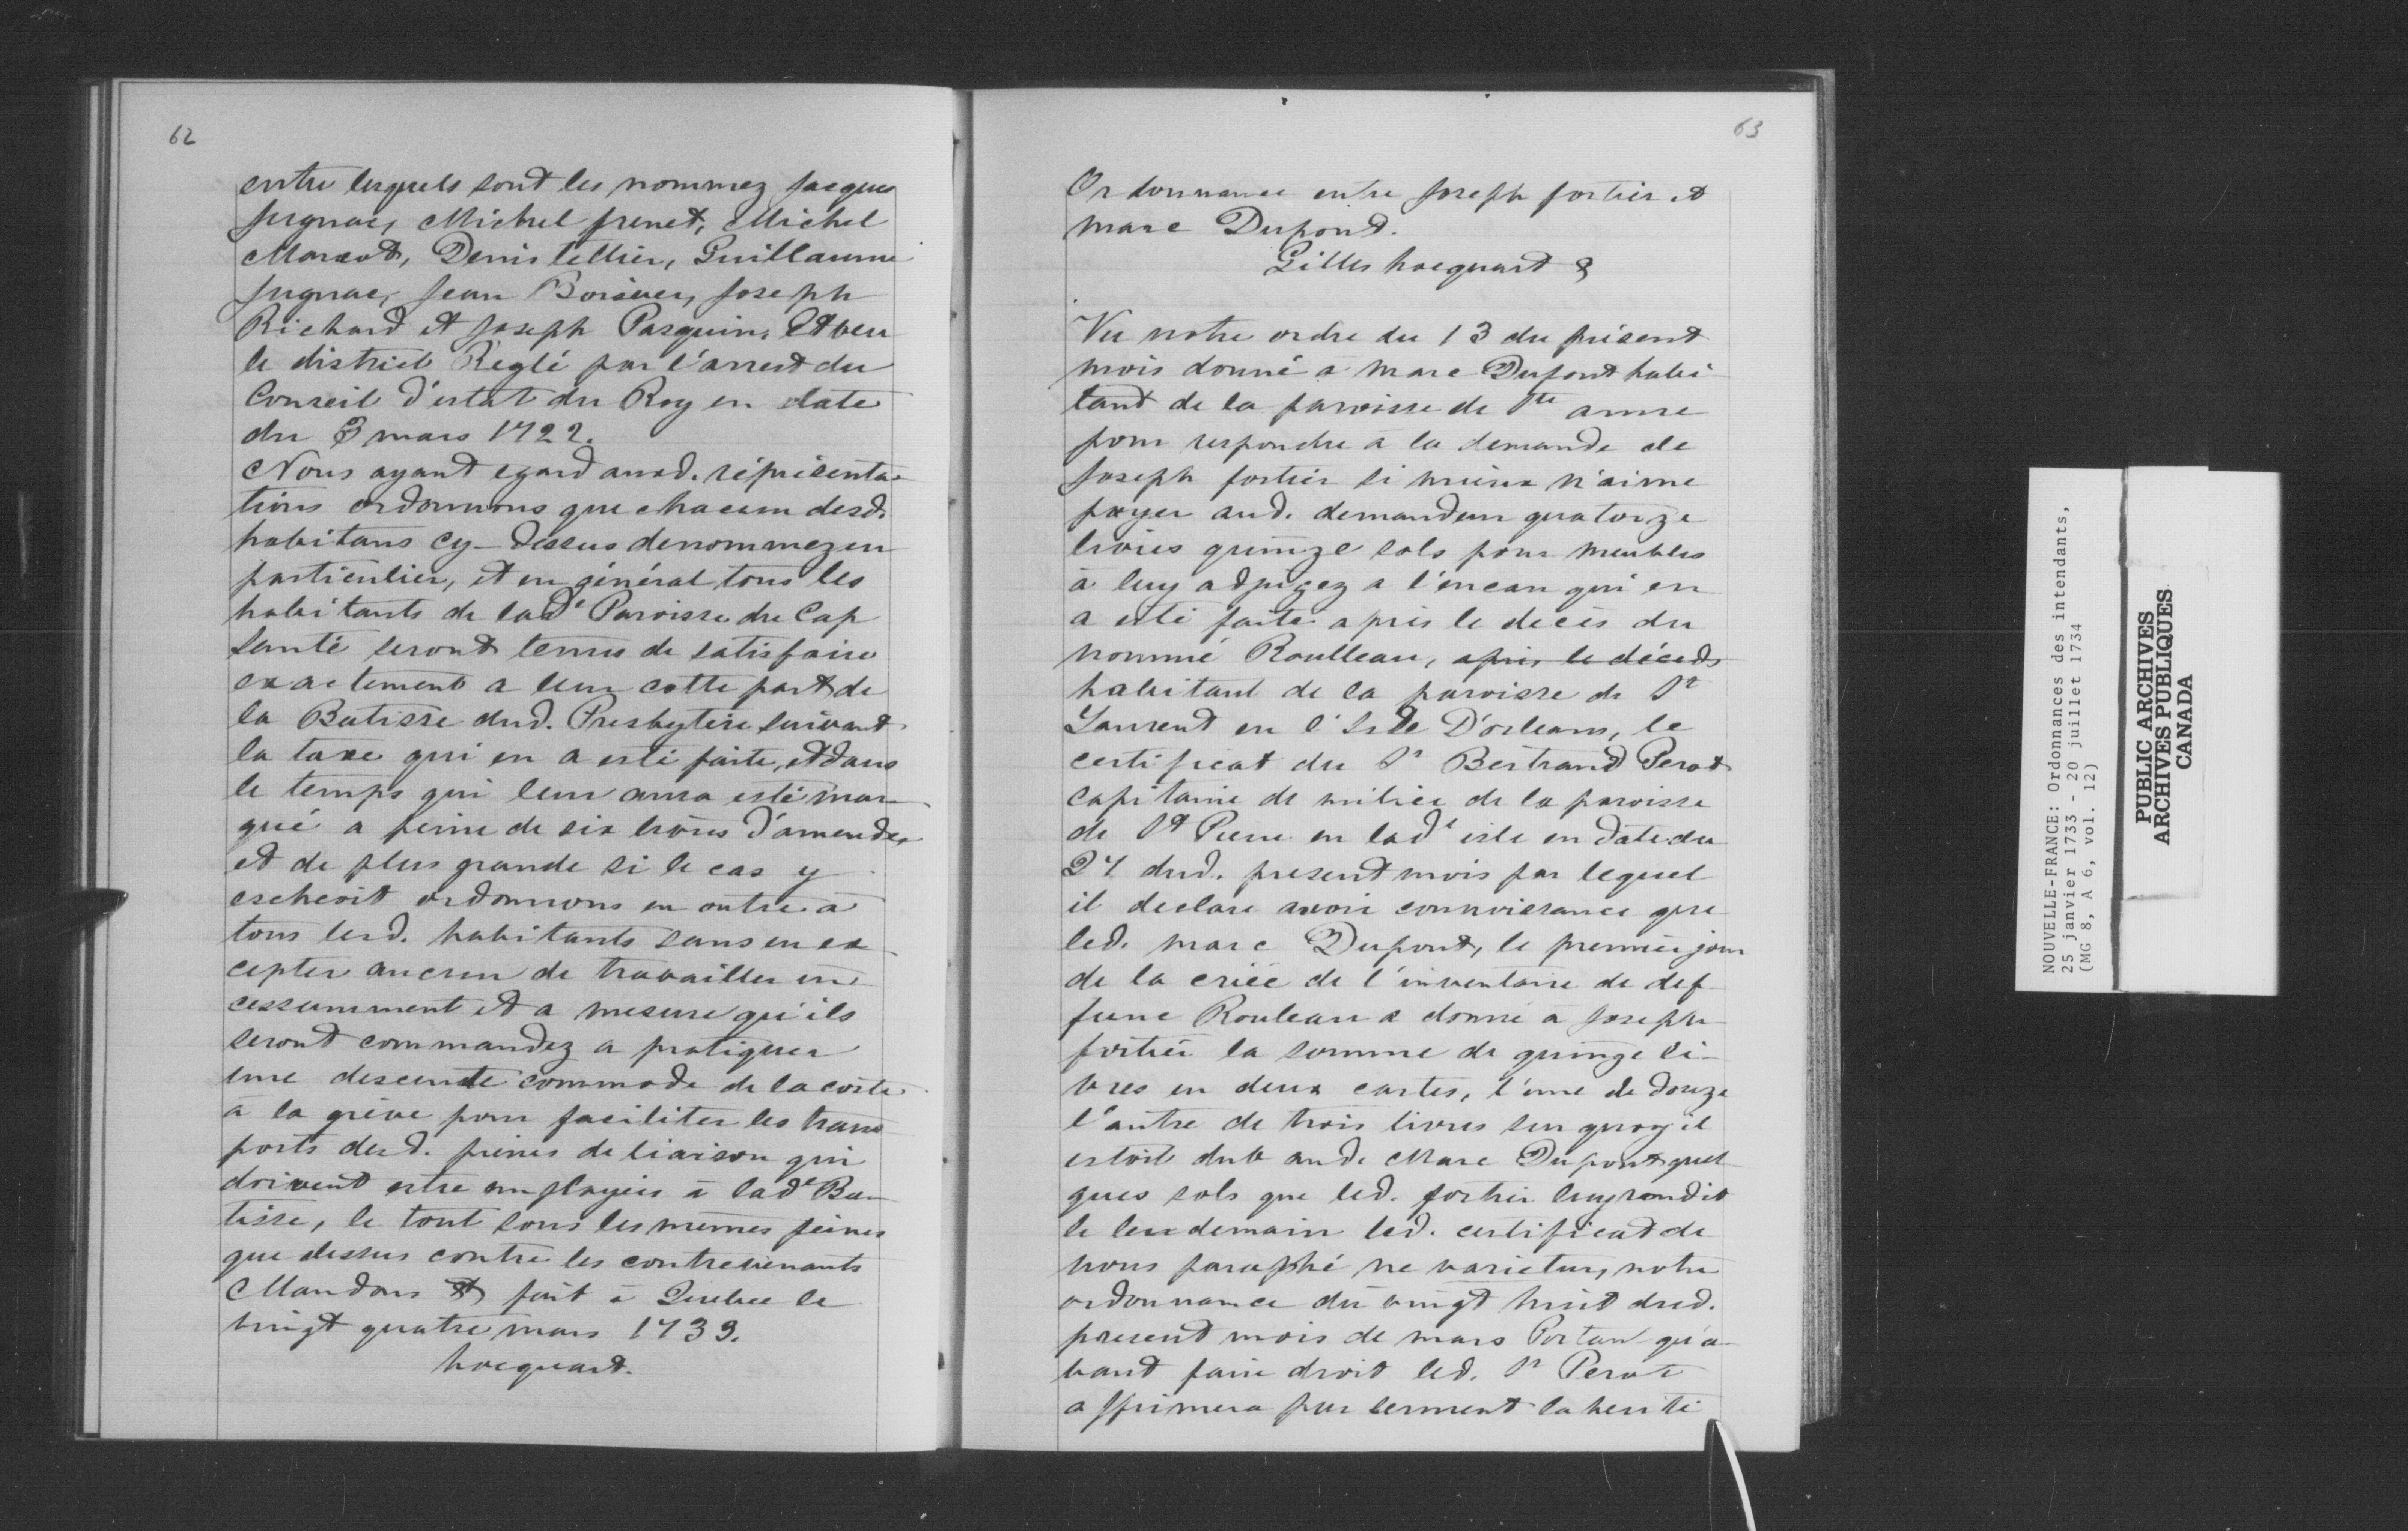 62
entre lesquels sont les nommez Jacques
Jugnac, Michel frenet, Michel
Marcot, Denis tellier, Guillaume
Jugnac, Jean Boisver, Joseph
Richard et Joseph Pasquin, Et veu
le district Reglé par l'arrest du
Conseil d'estat du Roy en date
du 3 mars 1722.
Nous ayant egard auxd. réprésenta-
tions ordonnons que chacun desd.
habitans cy-dessus denommez en
particulier, et en général tous les
habitants de lade Paroisse du Cap
santé seront tenus de satisfaire
exactement a leur cotte part de
la Batisse dud. Presbytère suivant
la taxe qui en a esté faite, et dans
le temps qui leur aura esté mar-
qué a peine de six livres d'amende,
et de plus grande si le cas y
escheoit ordonnons en outre à
tous lesd. habitants sans en ex
cepter aucun de travailler in-
cessamment et a mesure qu'ils
seront commandez a pratiquer
une descente commode de la coste
à la grève pour faciliter les trans
ports desd. pieces de liaison qui
doivent estre employées à lade Ba-
tisse, le tout sous les mêmes peines
que dessus contre les contrevenants
Mandons & fait à Quebec le
vingt quatre mars 1733.
hocquart.
63
Ordonnance entre Joseph fortier et
marc Dupont.
Gilles hocquart &
Vu notre ordre du 13 du présent
mois donné a marc Dupont habi-
tant de la paroisse de Ste anne
pour respondre à la demande de
Joseph fortier si mieux n'aime
payer aud. demandeur quatorze
livres quinze sols pour meubles
à luy adjugez a l'encan qui en
a esté faite après le decès du
nommé Roulleau, après le déceds
habitant de la paroisse de St
Laurent en l'Isle D'orleans, le
certificat du Sr Bertrand Perot
capitaine de milice de la paroisse
de St Pierre en lade isle en date du
27 dud. present mois par lequel
il declare avoir connoissance que
led. marc Dupont, le premier jour
de la criée de l'inventaire de def-
func Rouleau a donné a Joseph
fortier la somme de quinze li-
vres en deux cartes, l'une de douze
l'autre de trois livres sur quoy il
estoit dub aud. Marc Dupont quel
ques sols que led. fortier luy rendit
le lendemain led. certificat de
nous paraphé ne varietur, notre
ordonnance du vingt huit dud.
present mois de mars Portan qu'a-
vant faire droit led. Sr Perot
affirmera par serment la verité
NOUVELLE-FRANCE: Ordonnances des intendants,
25 janvier 1733 - 20 juillet 1734
(MG 8, A 6, vol. 12)
PUBLIC ARCHIVES
ARCHIVES PUBLIQUES
CANADA